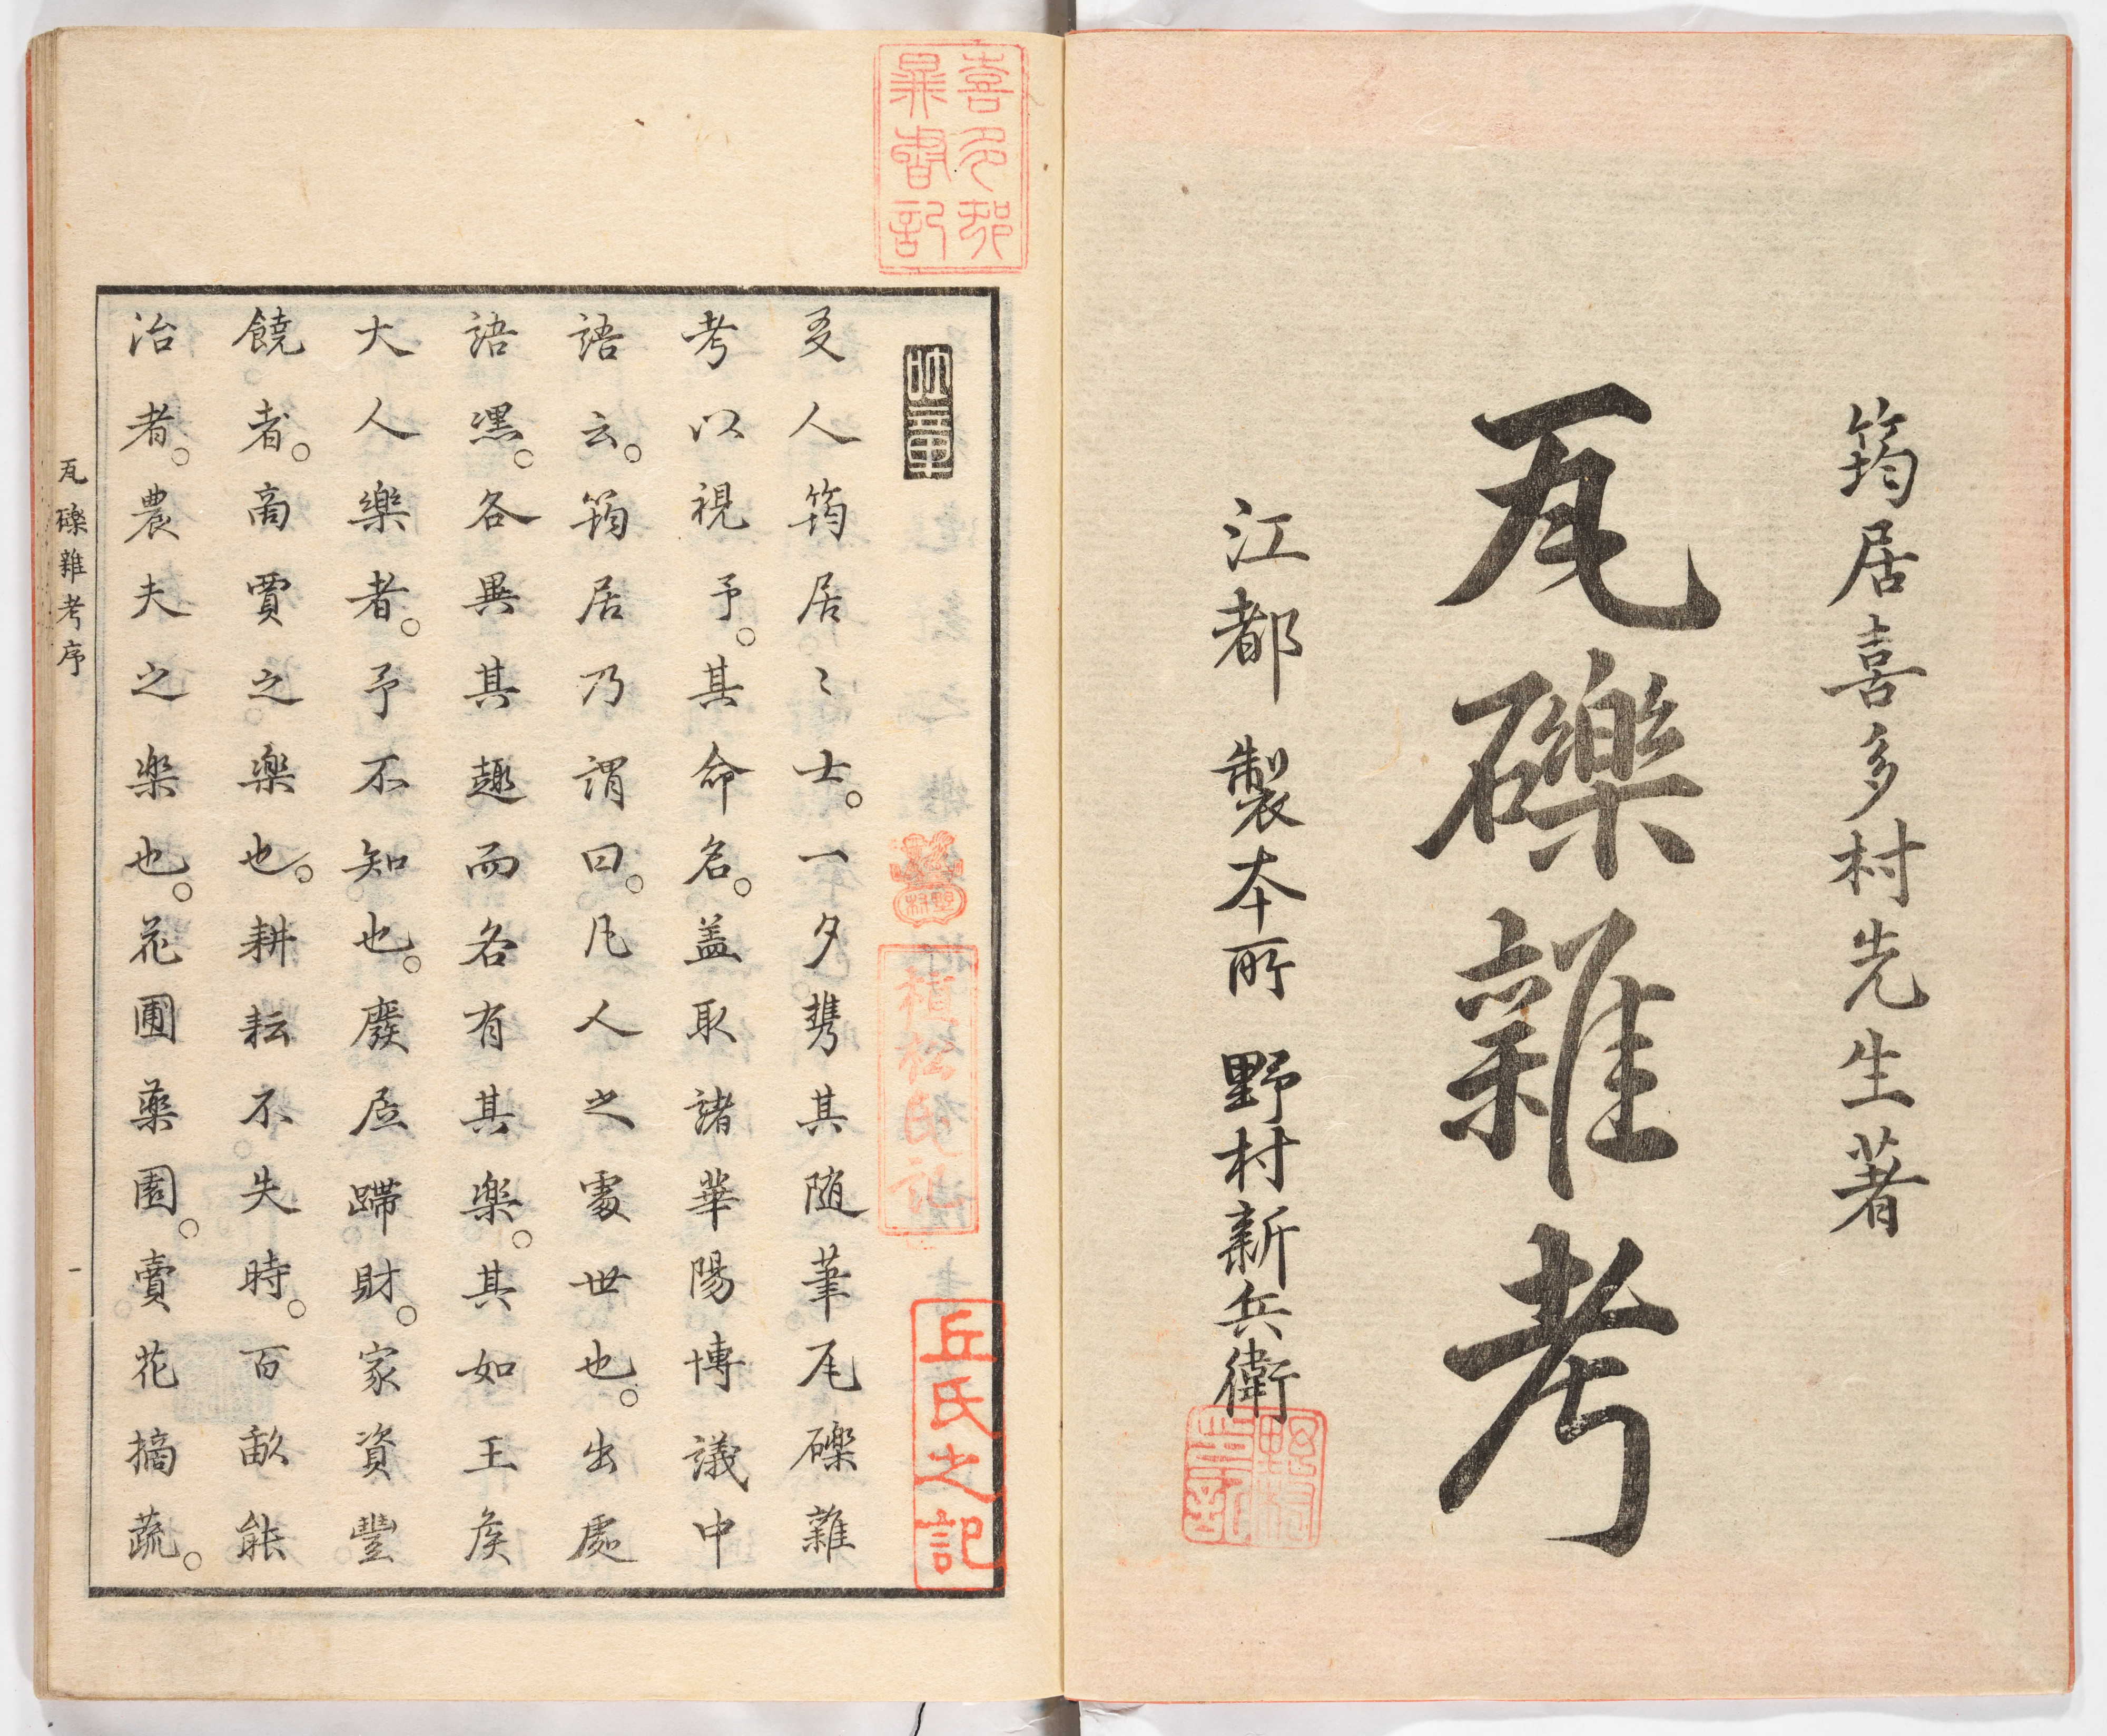 筠居喜多村先生著
瓦礫雜考
江都 製本所 野村新兵衛
友人筠居〻士。一夕携其随筆瓦礫雜
考以視予。其命名。盖取諸華陽博議中
語云。筠居乃謂曰。凡人之處世也。出處
語嘿。各異其趣而各有其楽。其如王侯
大人樂者。予不知也。廢居蹛財。家資豐
饒者。商賈之楽也。耕耘不失時。百畝能
治者。農夫之楽也。花圃薬園。賣花摘蔬。
瓦礫雜考序
一
丘氏之記
植松氏記